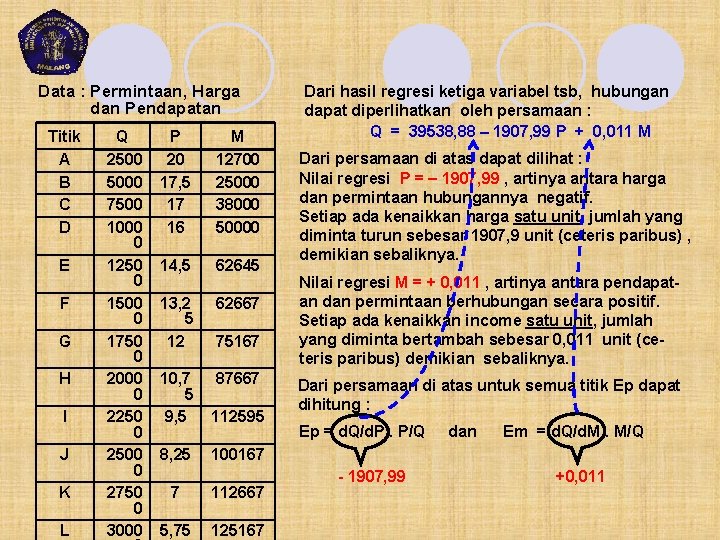 Data : Permintaan, Harga
dan Pendapatan
Titik Q P M
A 2500 20 12700
B 5000 17,5 25000
C 7500 17 38000
D 1000 16 50000
0
E 1250 14,5 62645
0
F 1500 13,2 62667
0 5
G 1750 12 75167
0
H 2000 10,7 87667
0 5
I 2250 9,5 112595
0
J 2500 8,25 100167
0
K 2750 7 112667
0
L 3000 5,75 125167
Dari hasil regresi ketiga variabel tsb, hubungan
dapat diperlihatkan oleh persamaan :
Q = 39538,88 – 1907,99 P + 0,011 M
Dari persamaan di atas dapat dilihat :
Nilai regresi P = – 1907,99 , artinya antara harga
dan permintaan hubungannya negatif.
Setiap ada kenaikkan harga satu unit, jumlah yang
diminta turun sebesar 1907,9 unit (ceteris paribus) ,
demikian sebaliknya.
Nilai regresi M = + 0,011 , artinya antara pendapat-
an dan permintaan berhubungan secara positif.
Setiap ada kenaikkan income satu unit, jumlah
yang diminta bertambah sebesar 0,011 unit (ce-
teris paribus) demikian sebaliknya.
Dari persamaan di atas untuk semua titik Ep dapat
dihitung :
Ep = d.Q/d.P . P/Q dan Em = d.Q/d.M . M/Q
- 1907,99 +0,011